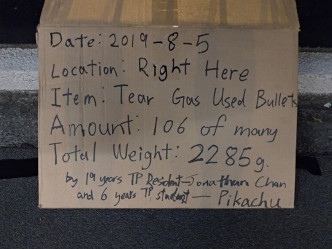 Date: 2019-8-5
Location: Right Here
Item: Tear Gas Used Bullets
Amount: 106 of many
Total Weight: 2285g.
by 19 years TP Resident - Jonathan Chan
and 6 years TP student - Pikachu